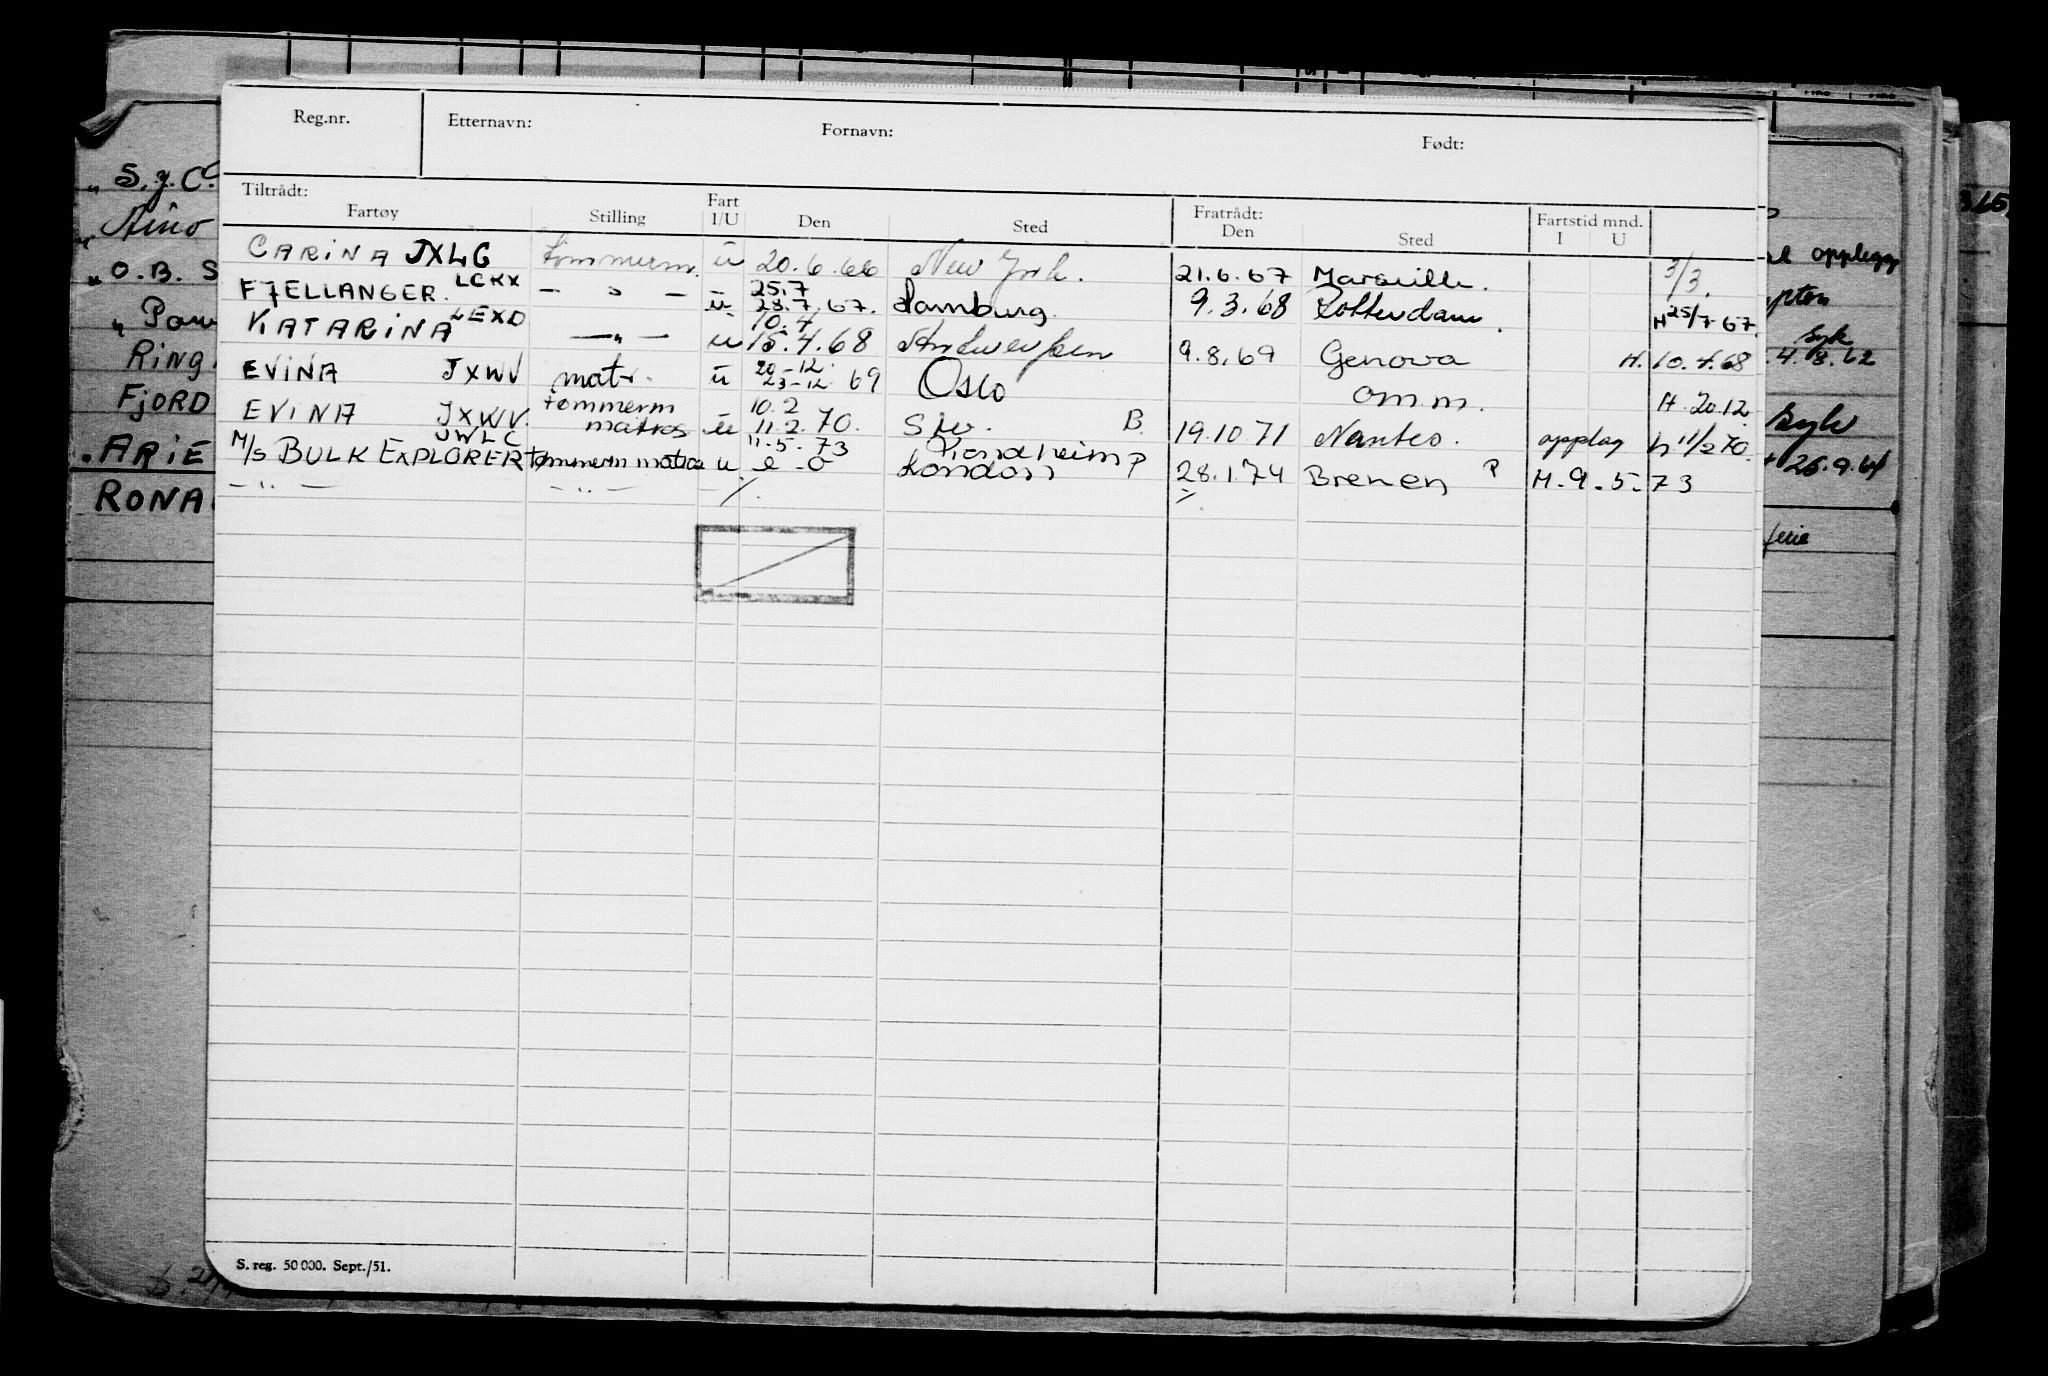 Reg.nr. Etternavn: Fornavn: Født:
Tiltrådt: Fratrådt:
Fartøy Stilling Fart I/U Den Sted Den Sted Fartstid mnd. I U
CARINA JXLG tømmerm. u 20.6.66 New York. 21.6.67 Marseille. 3/3.
FJELLANGER. LCKX — " — u 25.7 28.7.67. Hamburg. 9.3.68 Rotterdam. H 25/7 67.
KATARINA LEXD — " — u 10.4 15.4.68 Andwerpen 9.8.69 Genova H. 10.4.68
EVINA JXWV matr. u 20-12. 23-12. 69 Oslo omm. H. 20.12
EVINA JXWV. tømmerm matros u 10.2 11.2.70. B. 19.10 71 Nantes. opplag h 11/2 70.
M/S BULK EXPLORER JWLC tømmerm matros u 11.5.73 London P 28.1.74 Bremen P H. 9.5.73
— " — — " —
S. reg. 50 000. Sept./51.
" S.J. Co
Aino
" O.B. S
"
RING
FJORD
. ARIE
RONA
opplegg
syk
4.8.62
syk
26.9.64
ferie